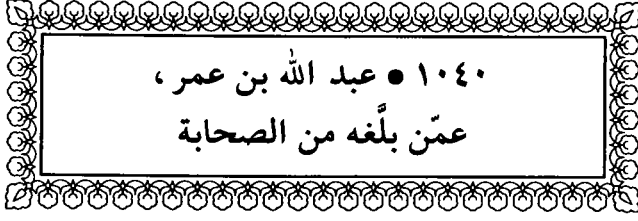 ١٠٤٠ • عبد الله بن عمر ،
عمّن بلَّغه من الصحابة